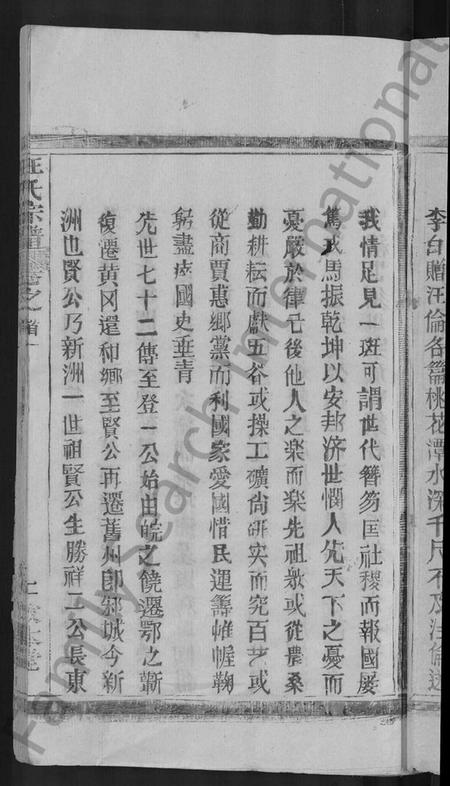 李白贈汪倫各篇桃花潭水深千尺不及汪倫送
我情足見一班可謂世代簪笏匡社稷而報國屡
篤戎馬振乾坤以安邦济世憫人先天下之憂而
憂嚴於律己後他人之楽而楽先祖教或從農桑
勤耕耘而獻五谷或操工礦尙研实而究百艺或
從商賈惠鄉黨而利國家愛國惜民運籌帷幄鞠
躬盡瘁國史垂青
先世七十二傳至登一公始由皖之饶遷鄂之蘄
復遷黄冈還和鄉至賢公再遷舊州卽邾城今新
洲也賢公乃新洲一世祖賢公生勝祥二公長東
汪氏宗譜
卷之首一
FamilySearch International